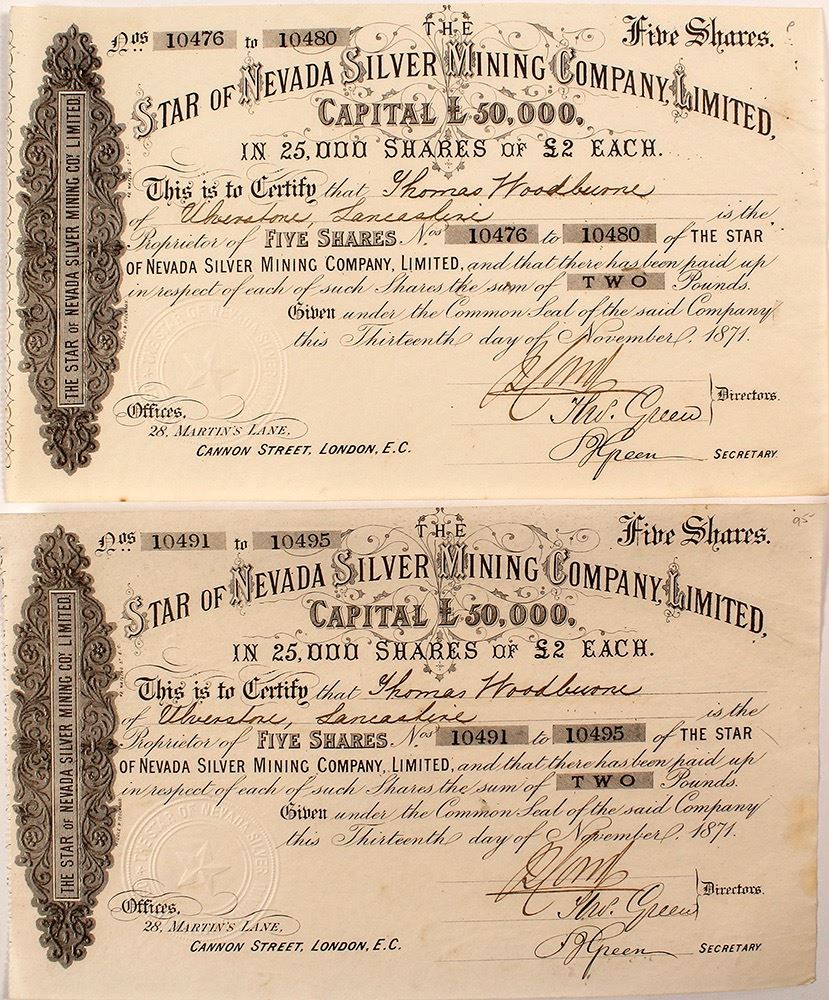 Nos 10476 to 10480
THE
Five Shares.
STAR OF NEVADA SILVER MINING COMPANY, LIMITED,
CAPITAL £ 50,000.
IN 25,000 SHARES OF £2 EACH.
This is to Certify that Thomas Woodburne
of Ulverstone, Lancashire is the
Proprietor of FIVE SHARES Nos 10476 to 10480 of THE STAR
OF NEVADA SILVER MINING COMPANY, LIMITED, and that there has been paid up
in respect of each of such Shares the sum of TWO Pounds.
Given under the Common Seal of the said Company
this Thirteenth day of November, 1871.
THE STAR OF NEVADA SILVER MINING COY. LIMITED.
THE STAR OF NEVADA SILVER
Thos. Green
Directors.
Offices,
28, MARTIN'S LANE,
CANNON STREET, LONDON, E.C.
Green
SECRETARY
Nos 10491 to 10495
THE
Five Shares.
95
STAR OF NEVADA SILVER MINING COMPANY, LIMITED,
CAPITAL £ 50,000.
IN 25,000 SHARES OF £2 EACH.
This is to Certify that Thomas Woodburne
of Ulverstone, Lancashire is the
Proprietor of FIVE SHARES Nos 10491 to 10495 of THE STAR
OF NEVADA SILVER MINING COMPANY, LIMITED, and that there has been paid up
in respect of each of such Shares the sum of TWO Pounds.
Given under the Common Seal of the said Company
this Thirteenth day of November, 1871.
THE STAR OF NEVADA SILVER MINING COY. LIMITED.
THE STAR OF NEVADA SILVER
Thos. Green
Directors.
Offices,
28, MARTIN'S LANE,
CANNON STREET, LONDON, E.C.
Green
SECRETARY